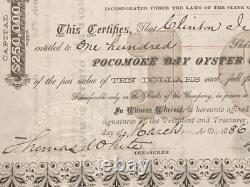 INCORPORATED UNDER THE LAWS OF THE STATE
CAPITAL
$250,000
This Certifies, That Clinton
entitled to One hundred
POCOMOKE BAY OYSTER
of the par value of TEN DOLLARS each, full
Transferable only on the Books of the Company, in person
In Witness Whereof, hereunto affixed
signatures of the President and Treasurer
day of March A.D. 1886
Thomas White
TREASURER